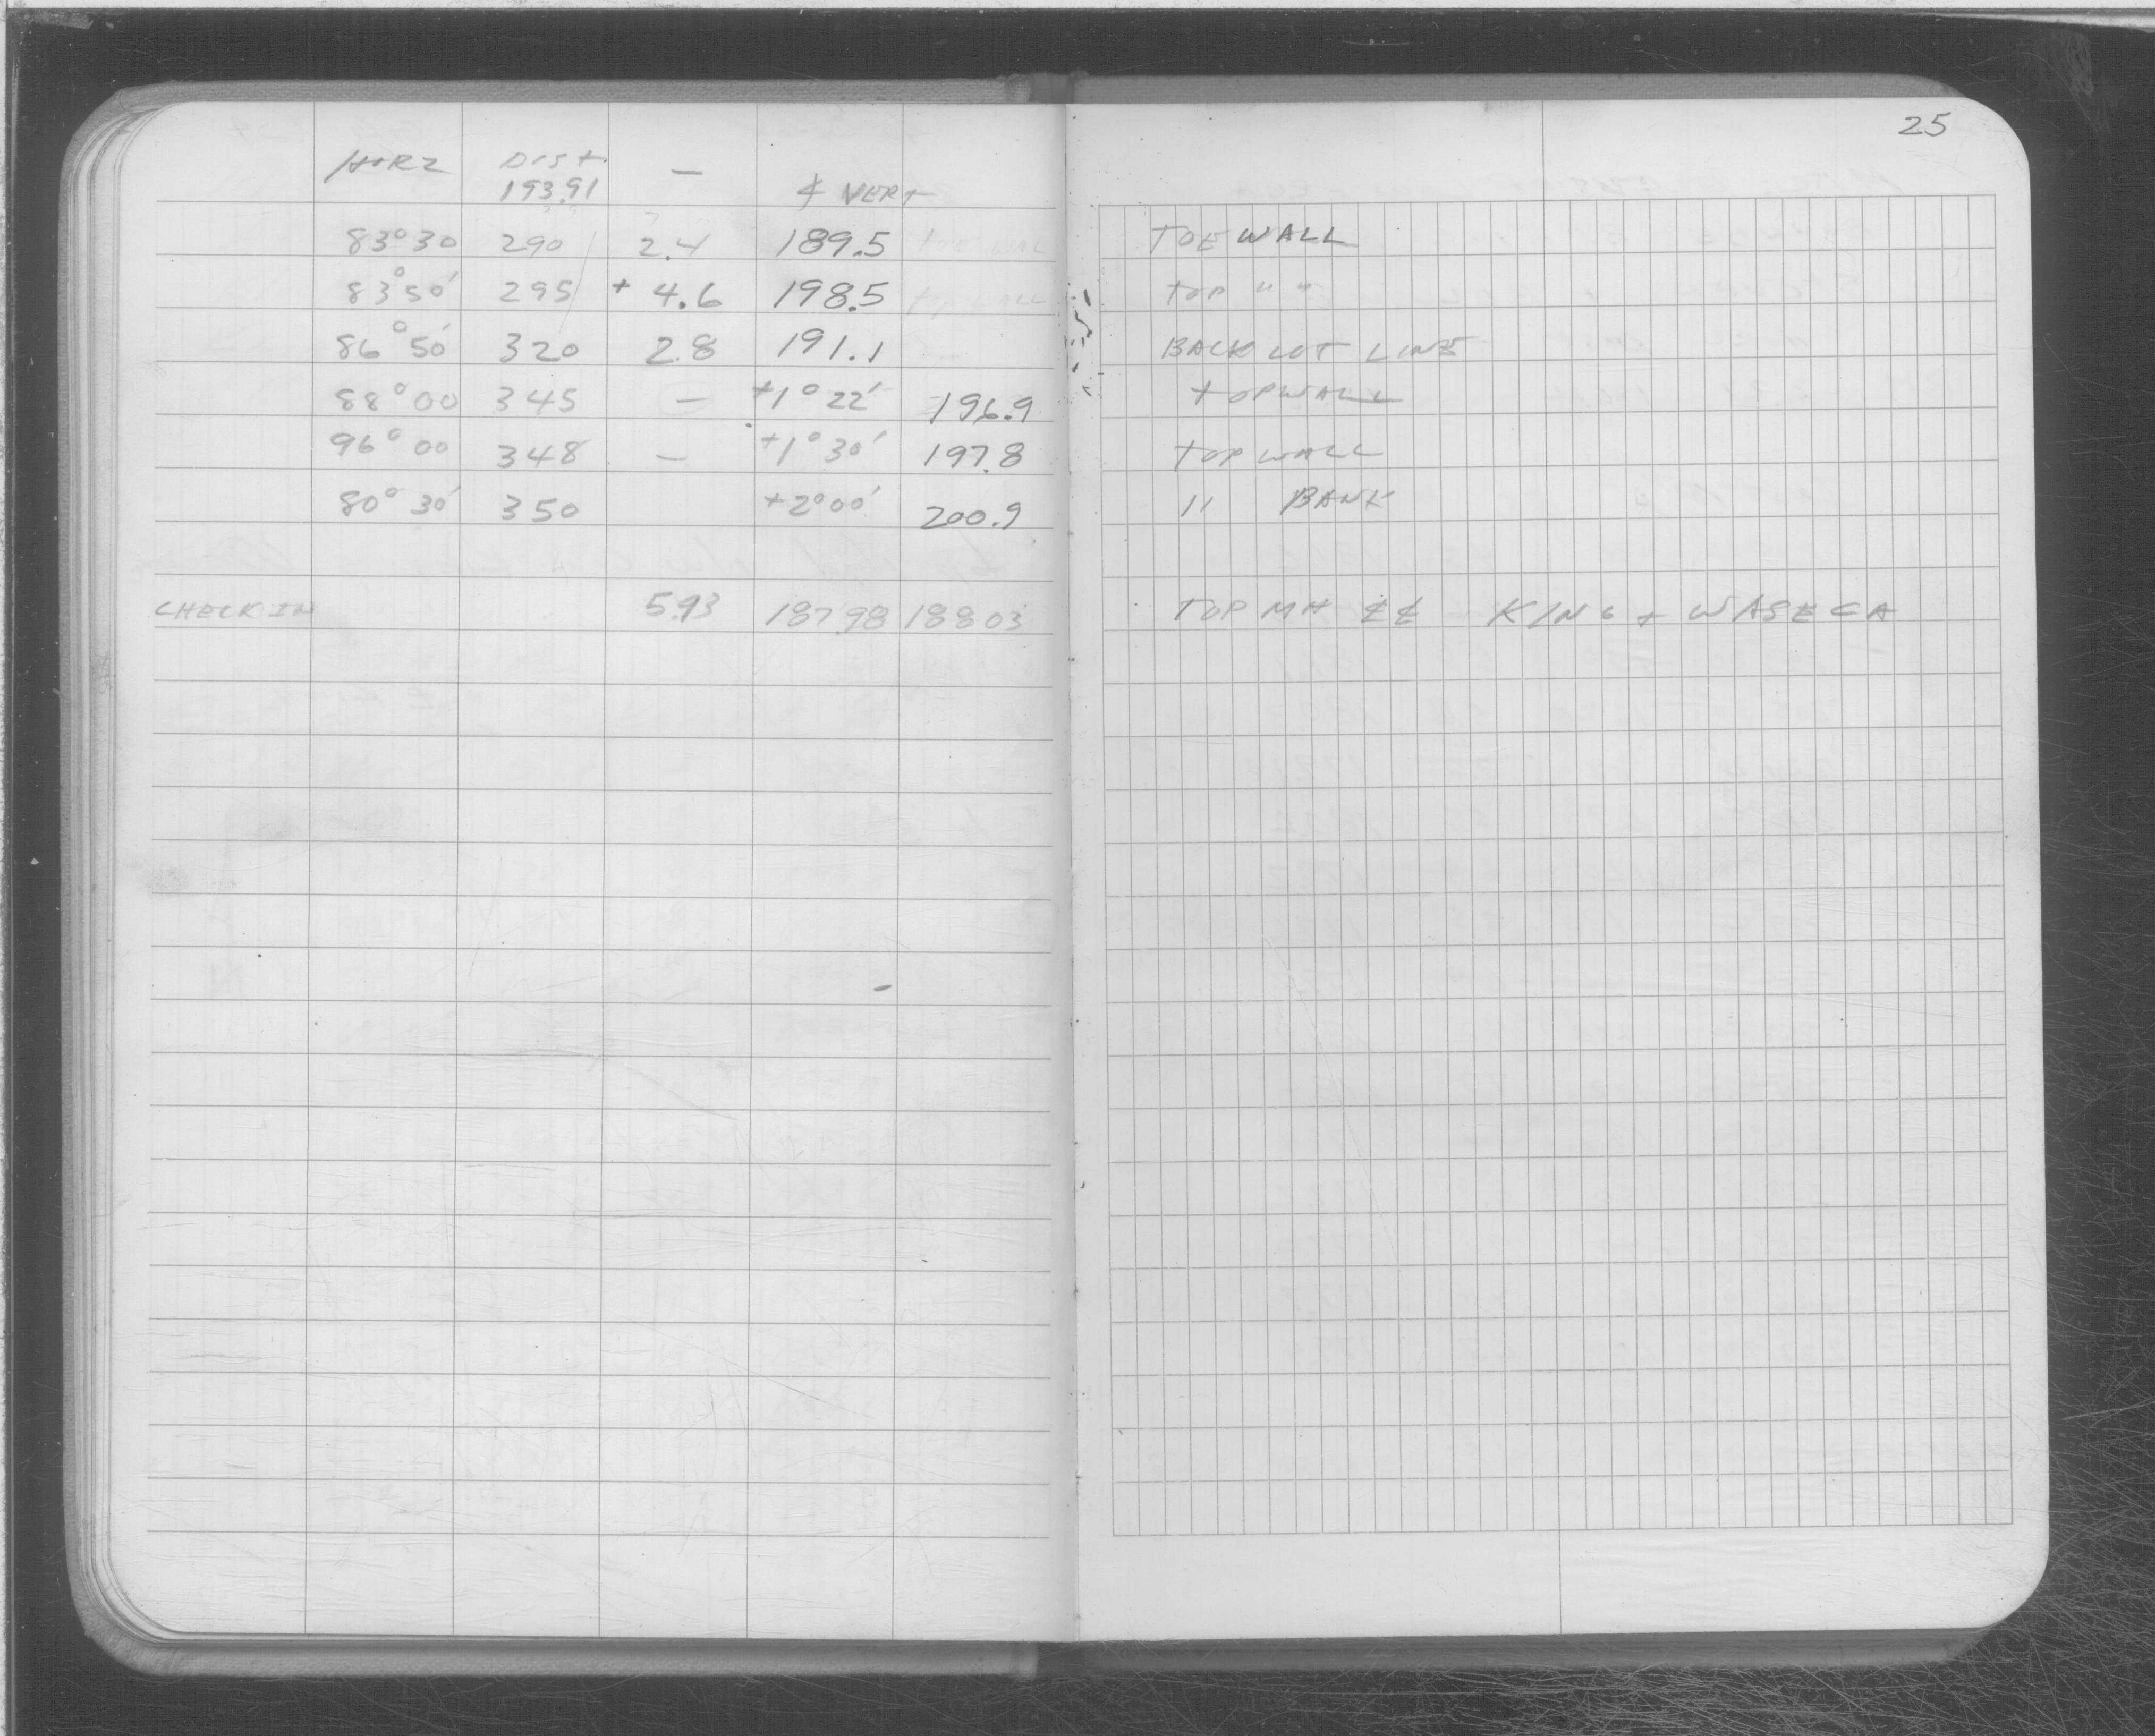 25
HORZ DIST — ∡ VERT
193.91
83°30 290 2.4 189.5 TOE WALL
83°50' 295 + 4.6 198.5 TOP " "
86°50' 320 2.8 191.1 BACK LOT LINE
88°00 345 — +1°22' 196.9 TOPWALL
96°00 348 — +1°30' 197.8 TOP WALL
80°30' 350 +2°00' 200.9 " BANK
CHECK IN 5.93 187.98 188.03 TOP MH ¢¢ KING + WASECA